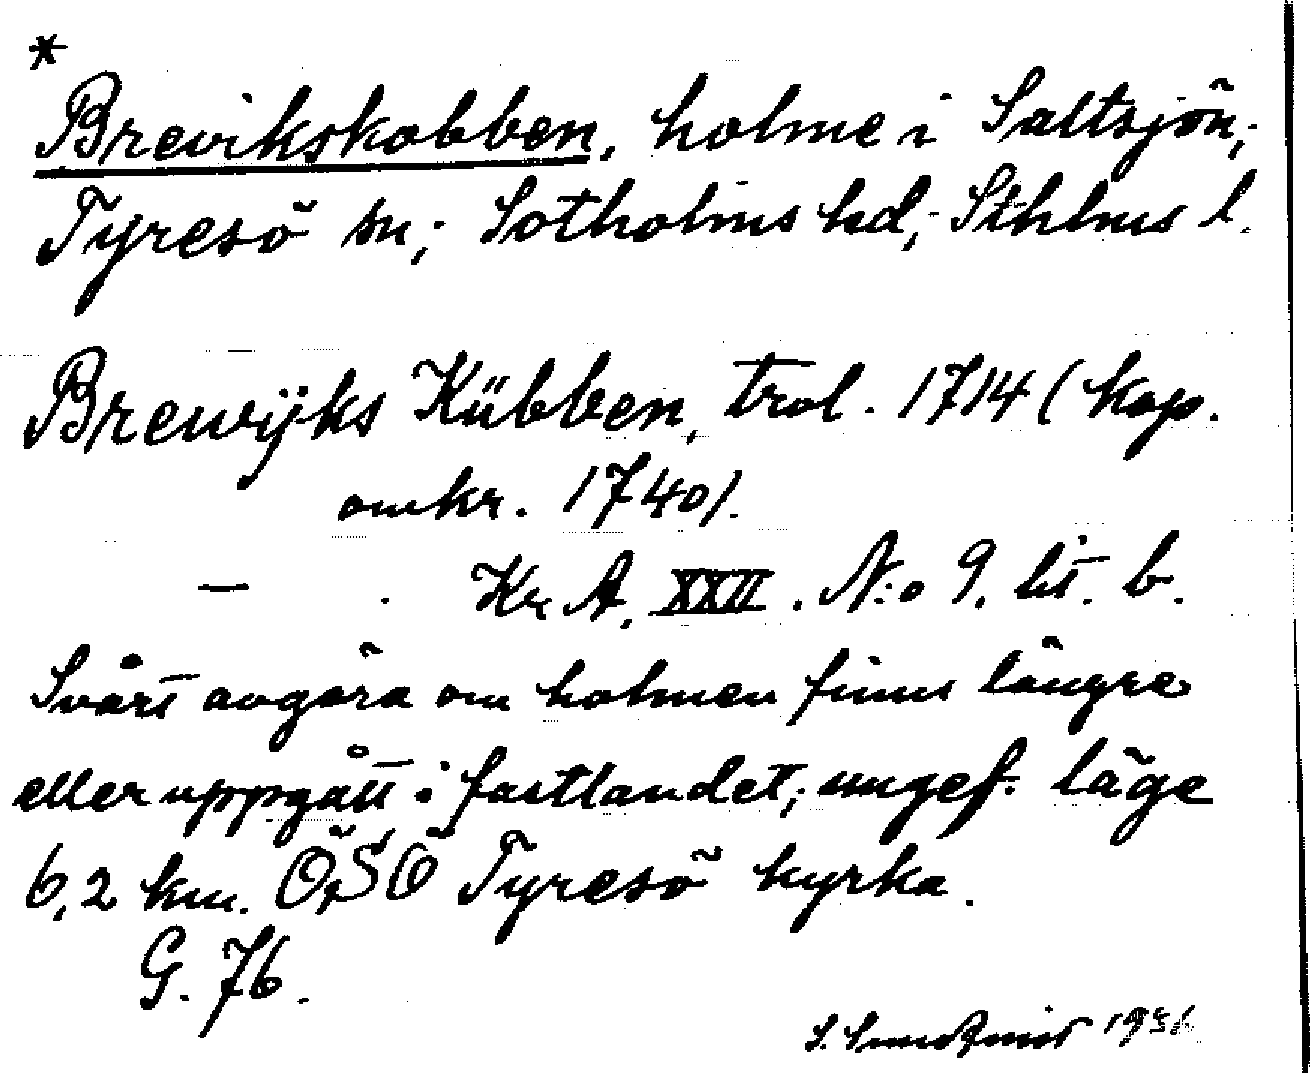 *
Brevikskobben, holme i Saltsjön,
Tyresö sn; Sotholms hd; Sthlms l.
Brewijks Kübben, trol. 1714 (kop.
omkr. 1740).
— Kr A. XXII. N:o 9. lit. b.
Svårt avgöra om holmen finns längre
eller uppgått i fastlandet; ungef. läge
6,2 km. Ö,SÖ Tyresö kyrka.
G. 76.
S. 193